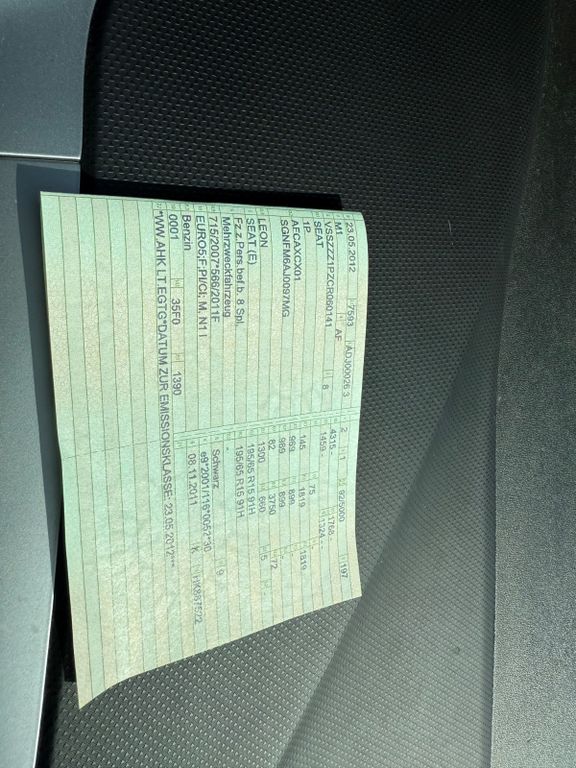 23.05.2012 7593 ADJ00026 3
M1 AF
VSSZZZ1PZCR060141 8
SEAT
1P
AFCAXCX01
SGNFM6AJ0097MG
LEON
SEAT (E)
Fz.z.Pers.bef.b. 8 Spl.
Mehrzweckfahrzeug
715/2007*566/2011F
EURO5;F;PI/CI; M, N1 I
Benzin
0001 35F0 1390
*WW.AHK LT.EGTG*DATUM ZUR EMISSIONSKLASSE: 23.05.2012***
2 1 92/5000 197
4315- 1768-
1459- 1324-
75 -
145 1819 1819
969 899 -
969 899 -
82 3750 72
1300 650 5
195/65 R15 91H
195/65 R15 91H
-
Schwarz 9
e9*2001/116*0052*30
08.11.2011 K